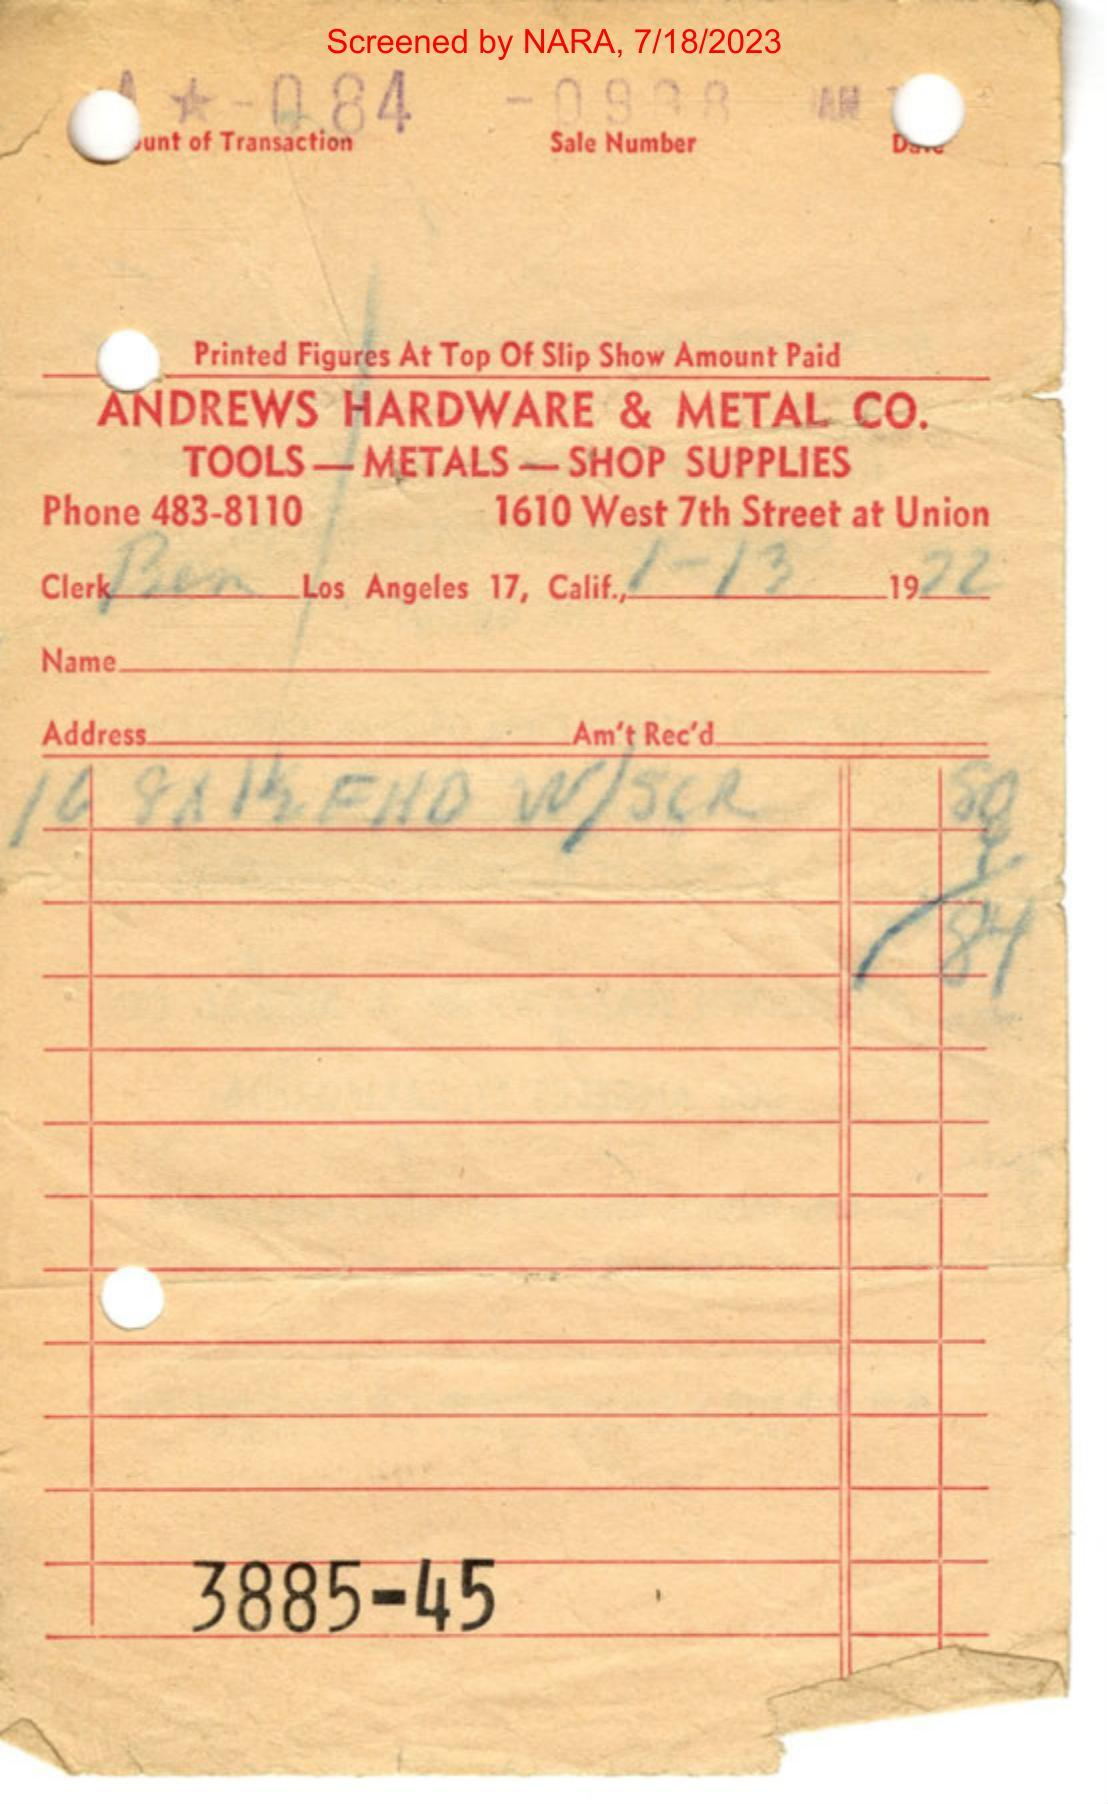 Screened by NARA, 7/18/2023
A ★-084 -0938 AM
unt of Transaction Sale Number Date
Printed Figures At Top Of Slip Show Amount Paid
ANDREWS HARDWARE & METAL CO.
TOOLS — METALS — SHOP SUPPLIES
Phone 483-8110 1610 West 7th Street at Union
Clerk Ben Los Angeles 17, Calif., 1-13 1972
Name
Address Am't Rec'd
16 8x1½ FHD W/SCR 80
4
84
3885-45